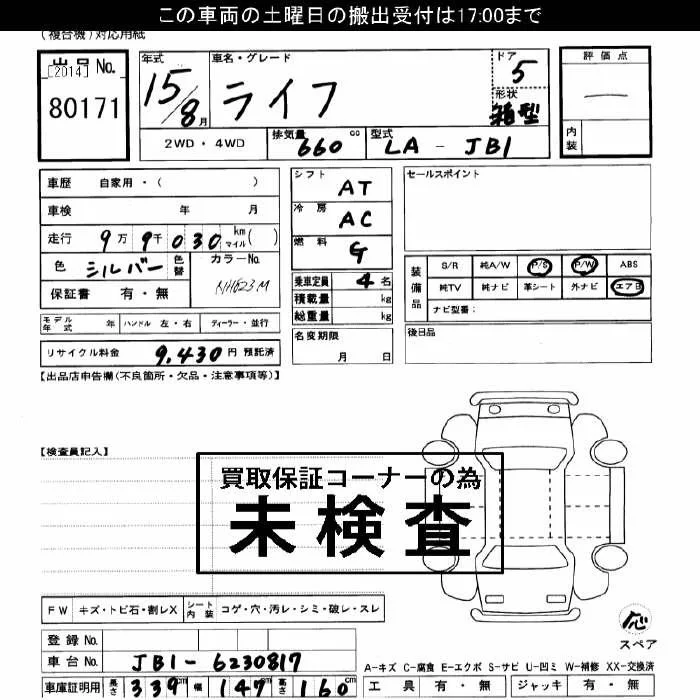 この車両の土曜日の搬出受付は17:00まで
(複合機)対応用紙
出品No.
[2014]
80171
年式
15/8月
車名・グレード
ライフ
ドア
5
形状
箱型
評価点
一
内装
2WD・4WD
排気量
660 cc
型式
LA - JB1
車歴 自家用・( )
車検 年 月
走行 9万9千030 km マイル( )
色 シルバー 色替
カラーNo.
NH623M
保証書 有・無
シフト AT
冷房 AC
燃料 G
乗車定員 4名
積載量 kg
総重量 kg
名変期限
月 日
セールスポイント
装備品
S/R 純A/W P/S P/W ABS
純TV 純ナビ 革シート 外ナビ エアB
ナビ型番:
後日品
モデル年式 年 ハンドル 左・右 ディーラー・並行
リサイクル料金 9,430円 預託済
【出品店申告欄(不良箇所・欠品・注意事項等)】
【検査員記入】
買取保証コーナーの為
未検査
FW キズ・トビ石・割レX シート内装 コゲ・穴・汚レ・シミ・破レ・スレ
登録No.
車台No. JB1-6230817
車庫証明用 長さ 339cm 幅 147cm 高さ 160cm
応
スペア
A-キズ C-腐食 E-エクボ S-サビ U-凹ミ W-補修 XX-交換済
工具 有・無 ジャッキ 有・無